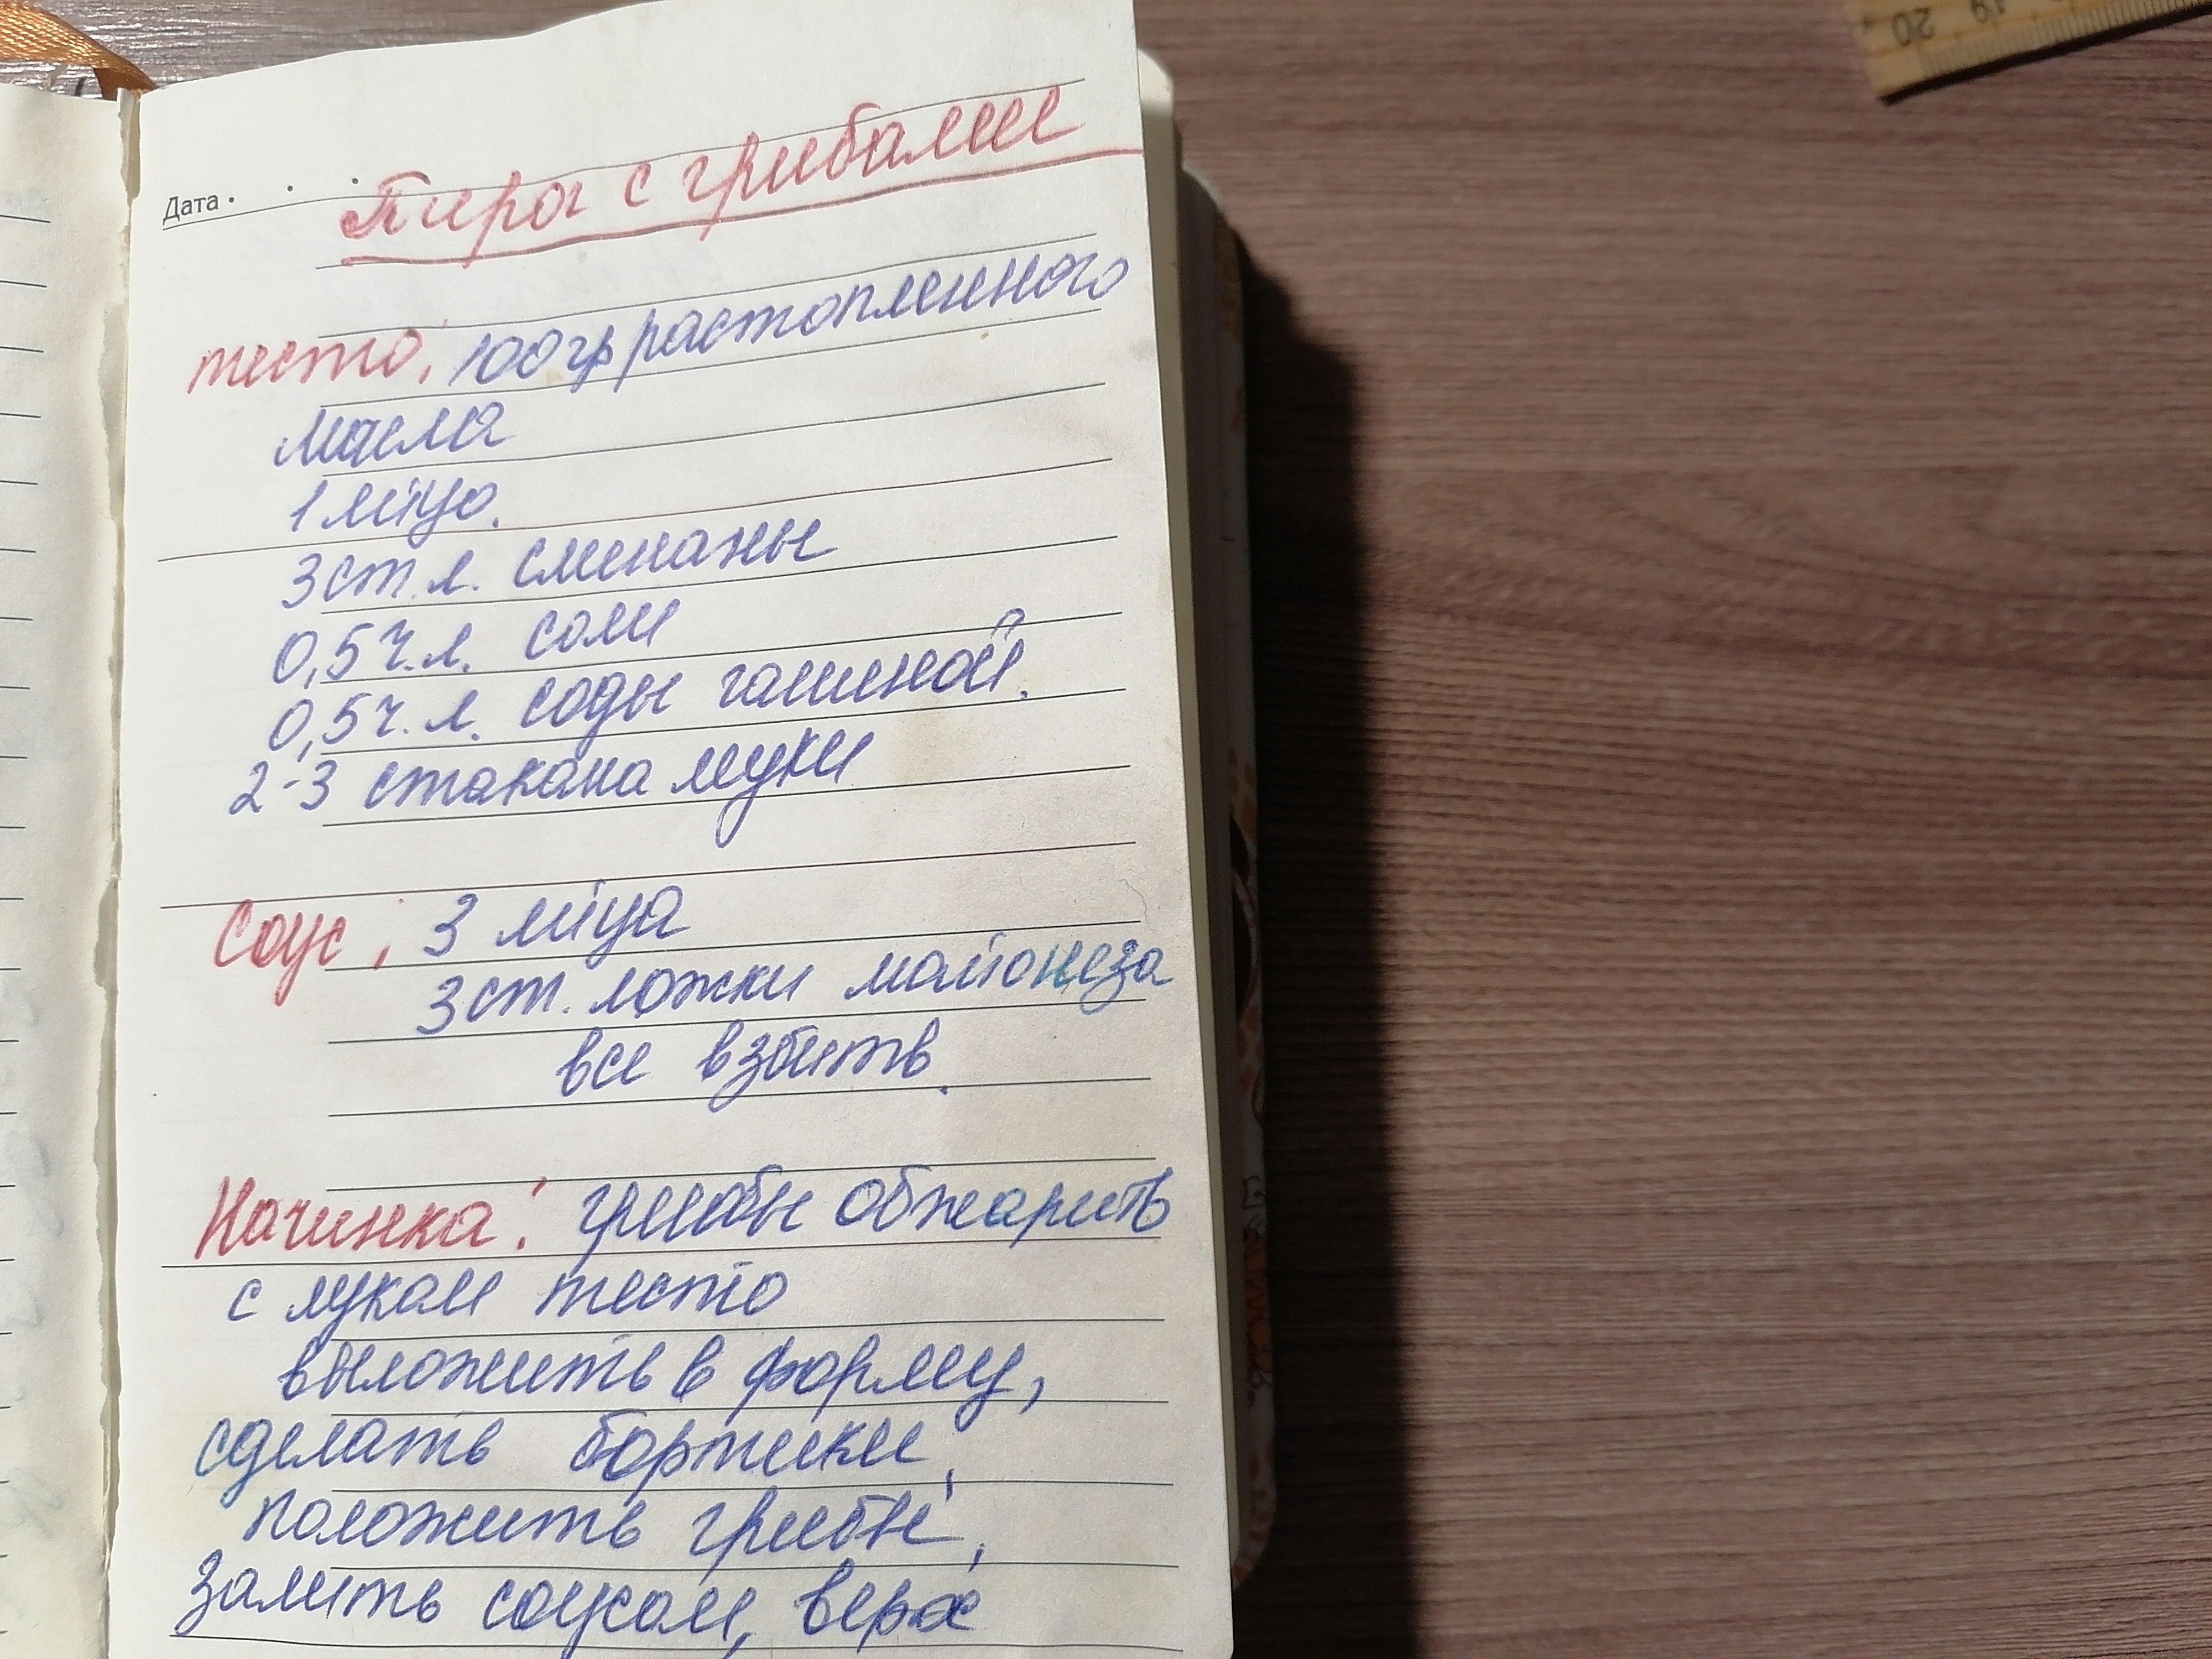 20 19
Дата.
Пирог с грибами
тесто: 100 гр растопленного
масла
1 яйцо.
3 ст. л. сметаны
0,5 ч. л. соли
0,5 ч. л. соды гашеной.
2-3 стакана муки
Соус: 3 яйца
3 ст. ложки майонеза
все взбить.
Начинка: грибы обжарить
с луком тесто
выложить в форму,
сделать бортики,
положить грибы,
залить соусом, верх